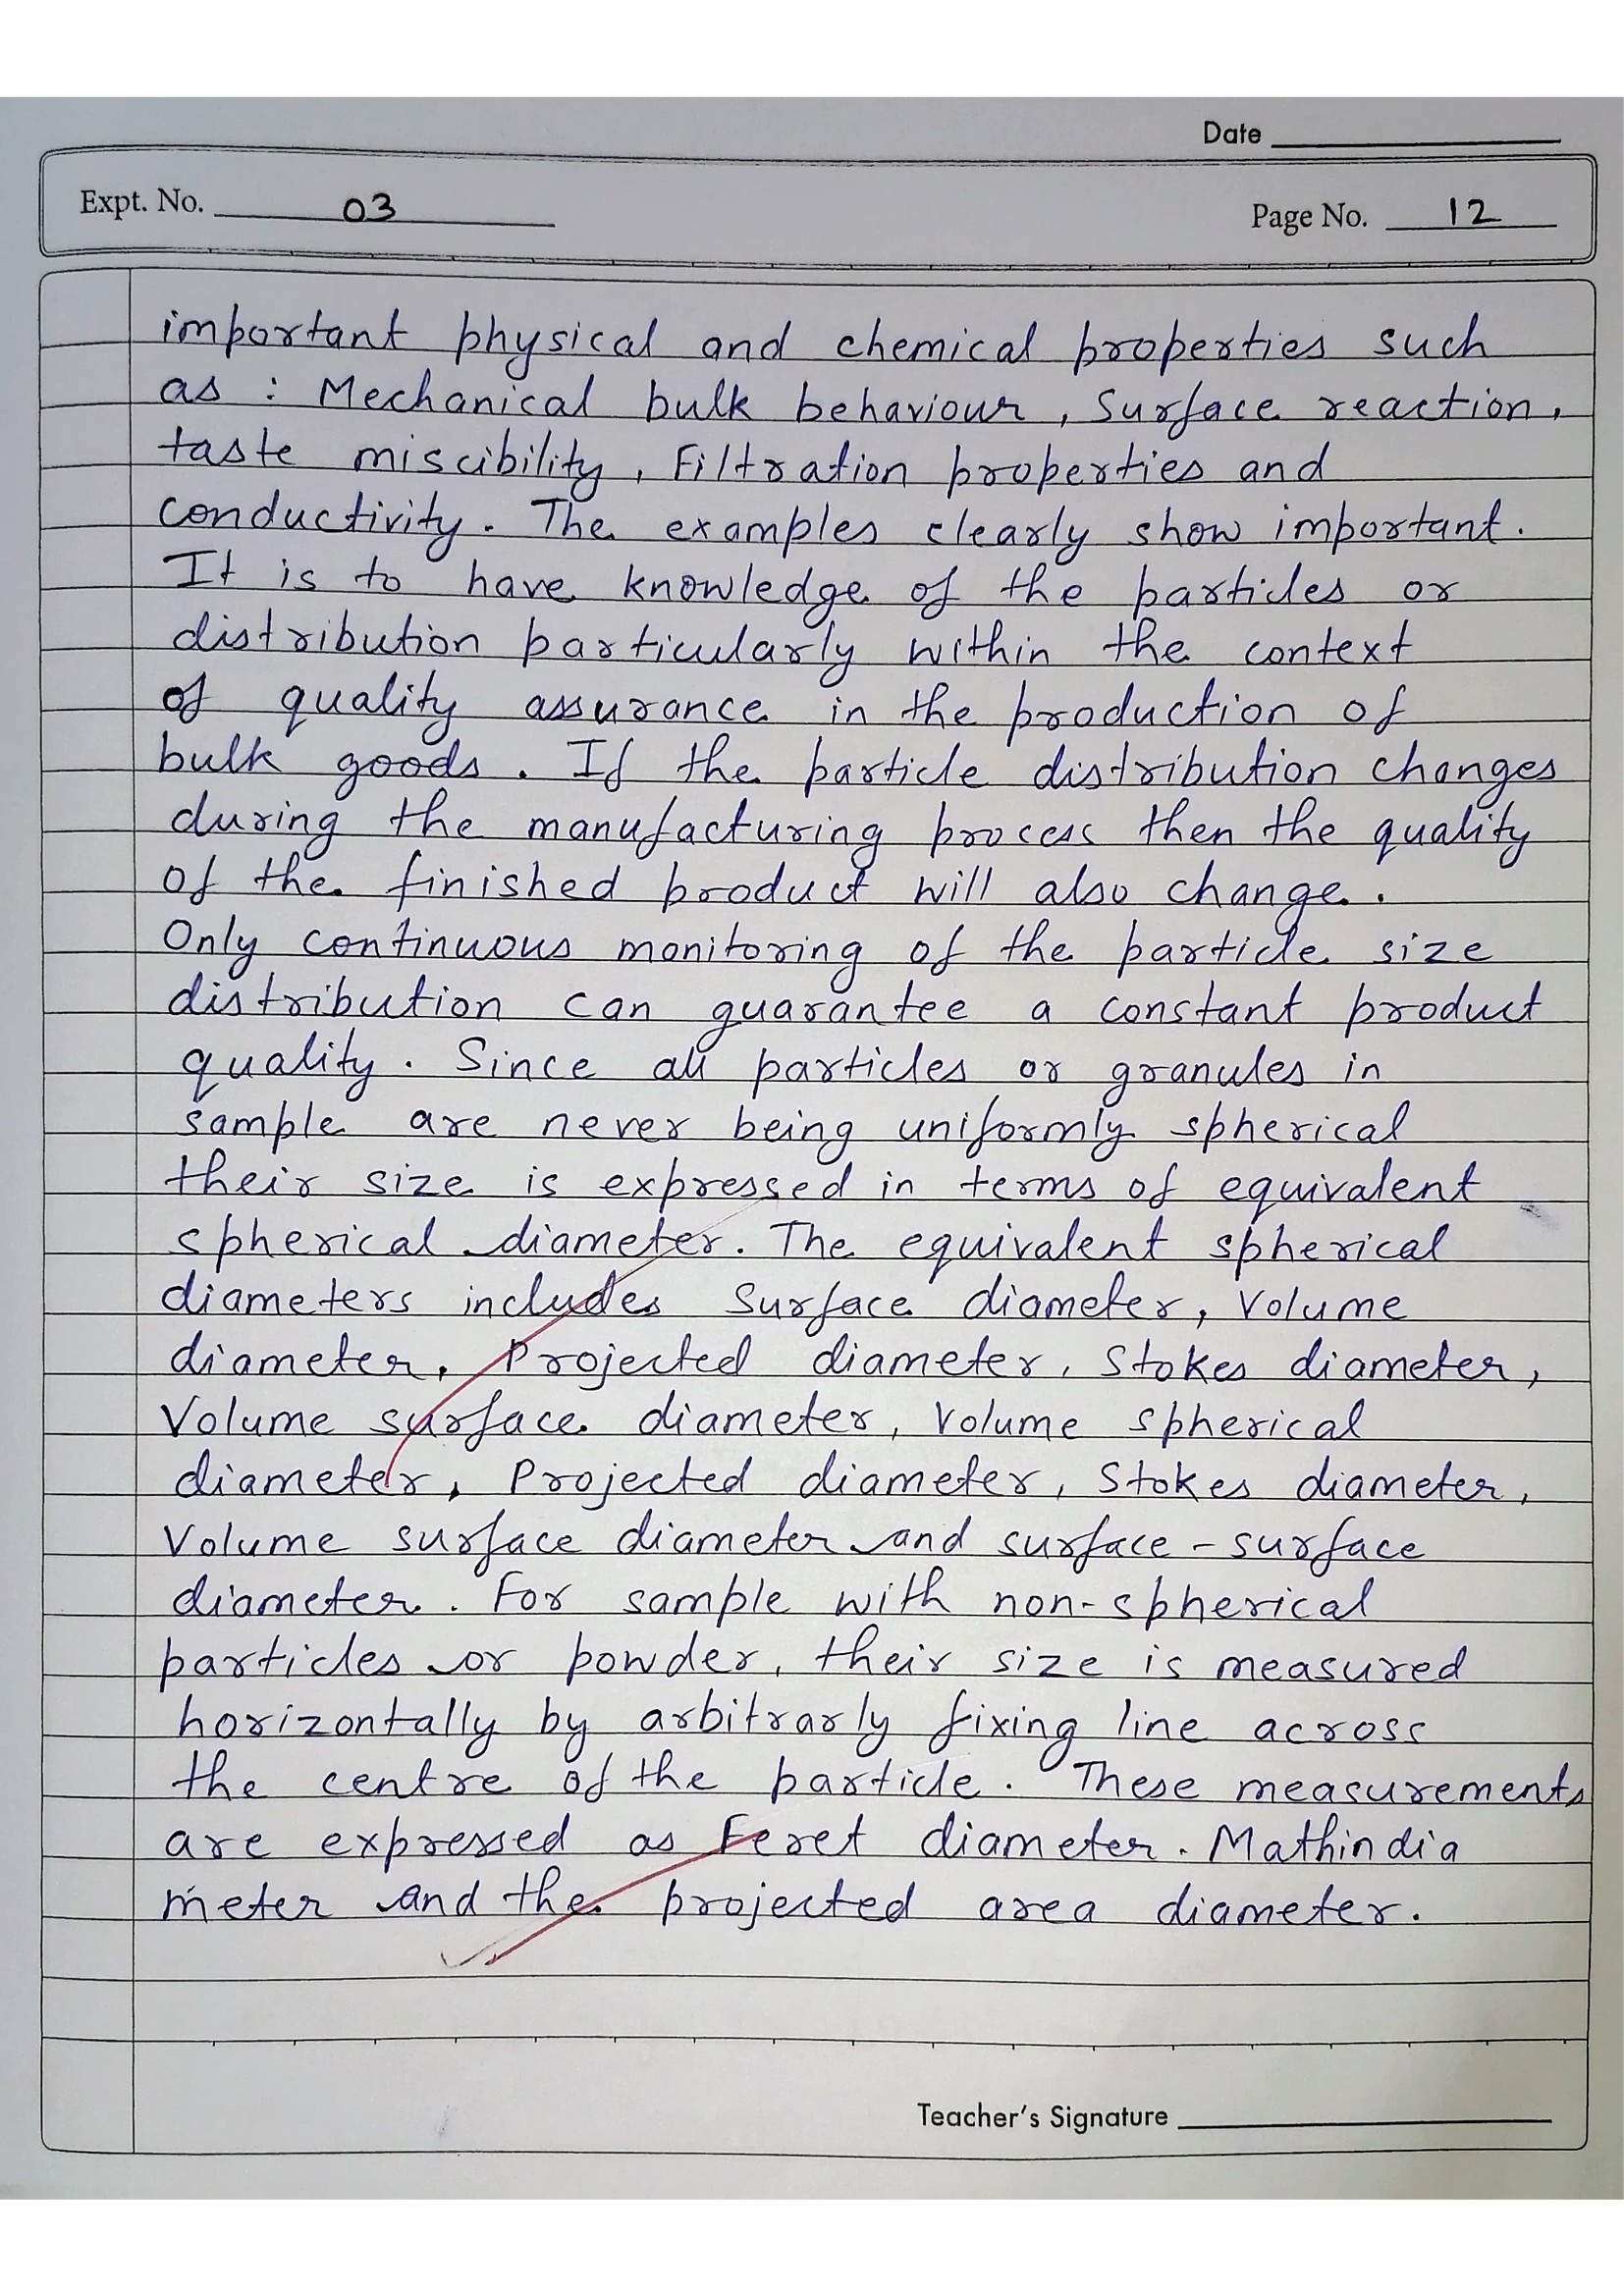 Date
Expt. No. 03
Page No. 12
important physical and chemical properties such
as : Mechanical bulk behaviour, Surface reaction,
taste miscibility, Filtration properties and
conductivity. The examples clearly show important.
It is to have knowledge of the particles or
distribution particularly within the context
of quality assurance in the production of
bulk goods. If the particle distribution changes
during the manufacturing process then the quality
of the finished product will also change.
Only continuous monitoring of the particle size
distribution can guarantee a constant product
quality. Since all particles or granules in
sample are never being uniformly spherical
their size is expressed in terms of equivalent
spherical diameter. The equivalent spherical
diameters includes Surface diameter, Volume
diameter, Projected diameter, Stokes diameter,
Volume surface diameter, Volume spherical
diameter, Projected diameter, Stokes diameter,
Volume surface diameter and surface - surface
diameter. For sample with non-spherical
particles or powder, their size is measured
horizontally by arbitrarly fixing line across
the centre of the particle. These measurements
are expressed as Feret diameter. Mathindia
meter and the projected area diameter.
Teacher's Signature